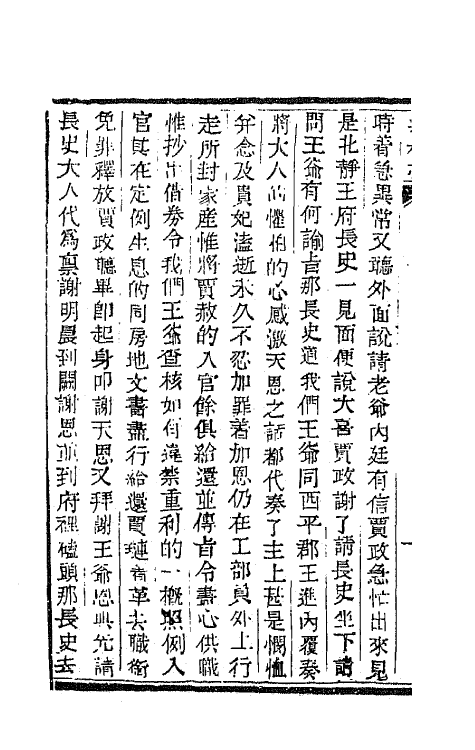 時着急異常又聽外面說請老爺內廷有信賈政急忙出來見
是北靜王府長史一見面便說大喜賈政謝了請長史坐下請
問王爺有何諭旨那長史道我們王爺同西平郡王進內覆奏
將大人的懼怕的心感激天恩之話都代奏了主上甚是憫恤
并念及貴妃溘逝未久不忍加罪着加恩仍在工部員外上行
走所封家產惟將賈赦的入官餘俱給還並傳旨令盡心供職
惟抄出借劵令我們王爺查核如有違禁重利的一概照例入
官其在定例生息的同房地文書盡行給還賈璉着革去職銜
免罪釋放賈政聽畢卽起身叩謝天恩又拜謝王爺恩典先請
長史大人代爲禀謝明晨到闕謝恩並到府裡磕頭那長史去